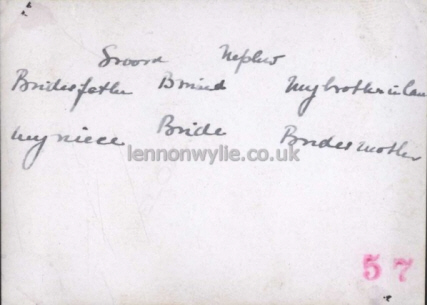 Groom Nephew
Brides father B maid My brother in law
My niece Bride Brides mother
lennonwylie.co.uk
57